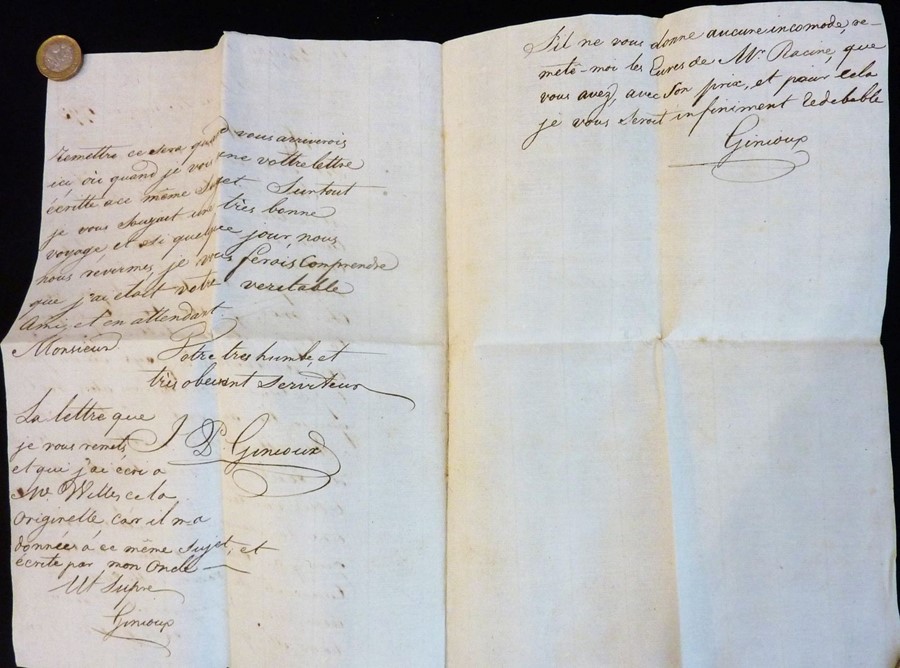 remettre ce sera quand vous arriverois
ici où quand je vous une vottre lettre
écritte a ce même Sujet. Surtout
je vous Souzait un très bonne
voyage et si quelque jour nous
nous révermes, je vous ferois Comprendre
que j'ai etait votre veritable
Ami, et en attendant.
Monsieur Votre tres humble, et
tres obeisent Serviteur
J P. Ginioux
La lettre que
je vous remets
et que j'ai ecri a
Mr. Willes ce la
Originelle, car il m'a
données a ce même Sujet, et
écrite par mon Oncle
Ut Supre
Ginioux
S'il ne vous donne aucune incomode, re-
mete-moi les Eures de Mr. Racine, que
vous avez, avec Son prix, et pour cela
je vous Seroit infiniment Redebable
Ginioux